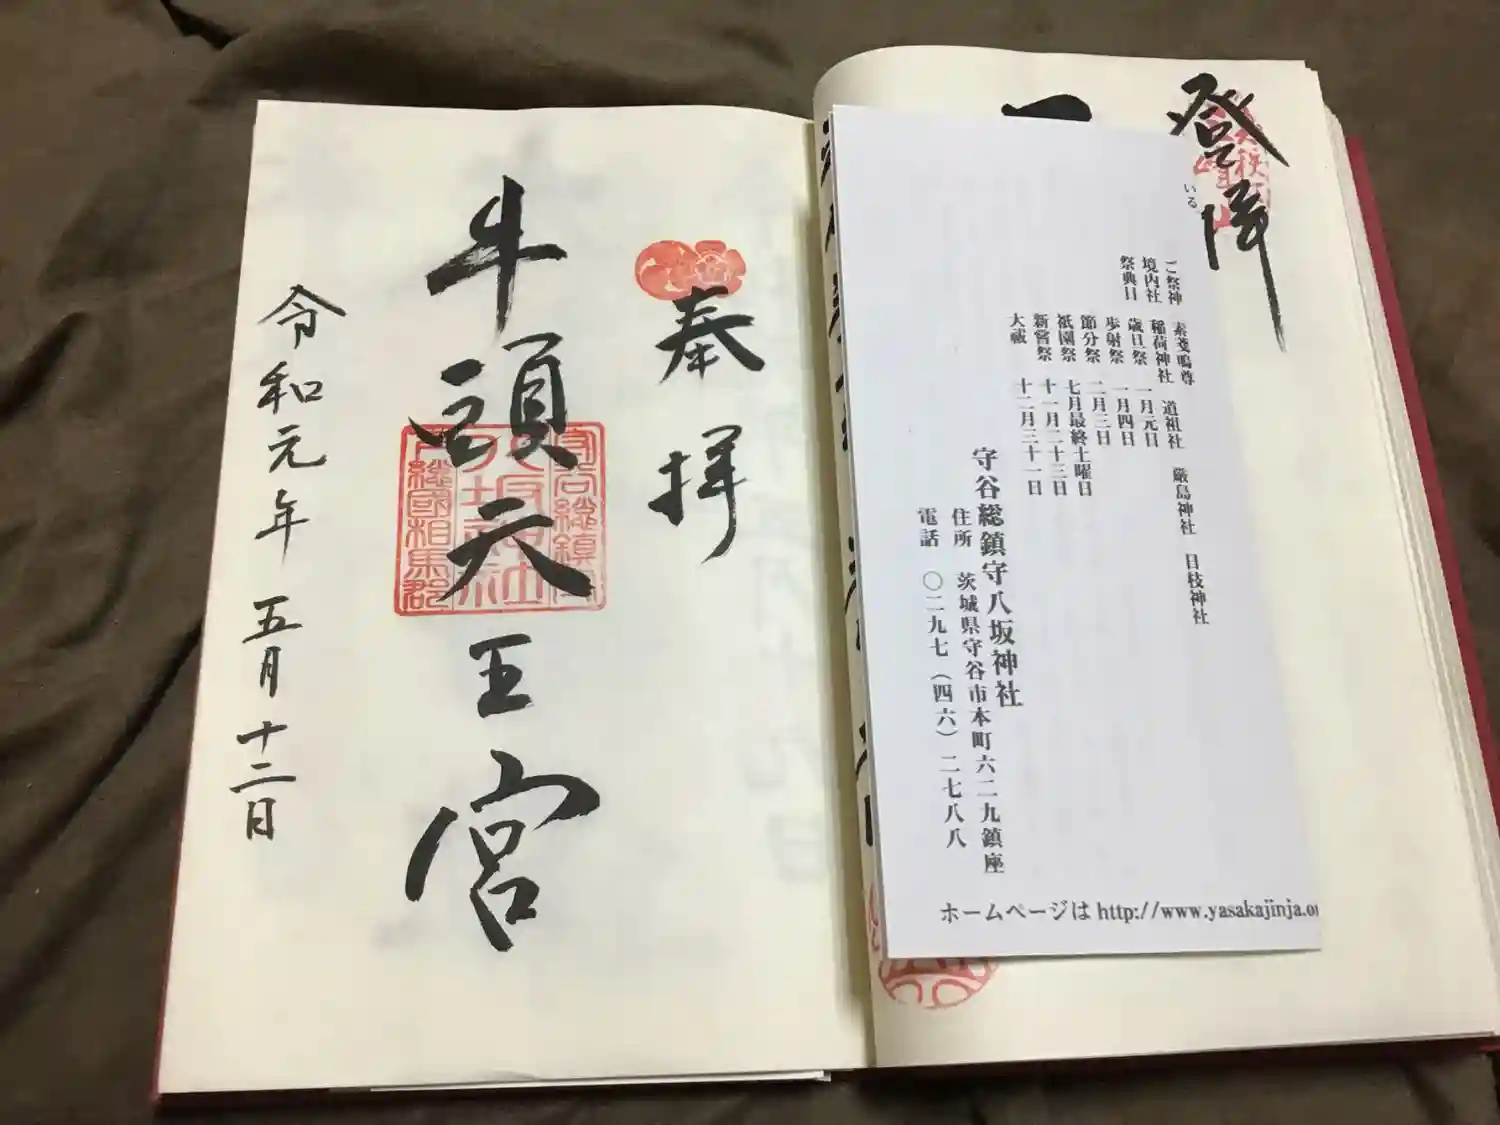 登拝
いる
ご祭神 素戔嗚尊
境内社 稲荷神社 道祖社 厳島神社 日枝神社
祭典日 歳旦祭 一月元日
歩射祭 一月四日
節分祭 二月三日
祇園祭 七月最終土曜日
新嘗祭 十一月二十三日
大祓 十二月三十一日
守谷総鎮守八坂神社
住所 茨城県守谷市本町六二九鎮座
電話 〇二九七(四六)二七八八
ホームページは http://www.yasakajinja.o
奉拝
牛頭天王宮
守谷総鎮守
八坂神社
下総國相馬郡
令和元年五月十二日